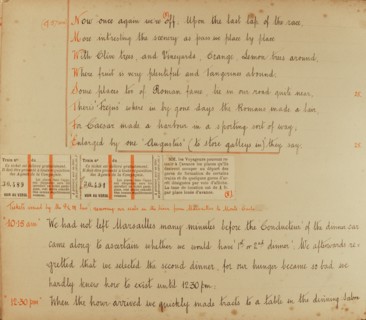 Now once again we're off. Upon the last lap of the race,
More intresting the scenery as pass we place by place
With Olive trees, and Vineyards, Orange Lemon trees around,
Where fruit is very plentiful and Tangerine abound;
Some places too of Roman fame, lie in our road quite near,
There's "Frejus" where in by gone days the Romans made a
For Caesar made a harbor in a sporting sort of way;
Enlarged by one "Augustus" (to store galleys in), they say;
Train Nº du
Train Nº du
MM. les Voyageurs
20,199
20,191
10·15 a.m. We had not left Marseilles many minutes before the Conductor of the dinner car
came along to ascertain whether we would have 1st or 2nd dinner. We afterwards re-
gretted that we selected the second dinner, for our hunger became so bad we
hardly knew how to exist until 12.30 pm.
12·30 pm When the hour arrived we quickly made tracks to a table in the dining saloon